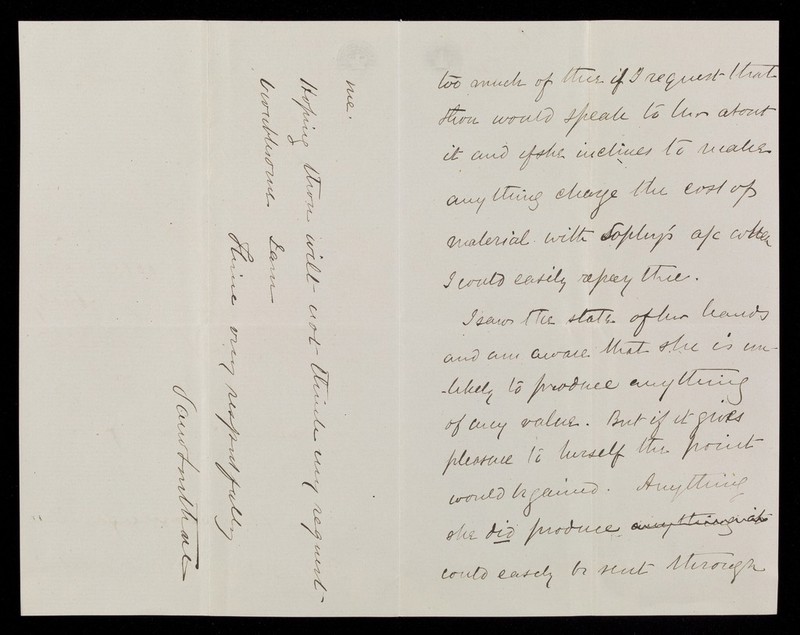 too much of thee if I request that
thou would speak to her about
it and if she inclines to make
anything charge the cost of
material with Sophy's a/c when
I could easily repay thee.
I saw the state of her hands
and am aware that she is un-
-likely to produce anything
of any value. But if it gives
pleasure to herself the point
would be gained. Anything
she did produce
could easely be sent through
me.
Hoping thou will not think my request
troublesome I am
Thine very respectfully